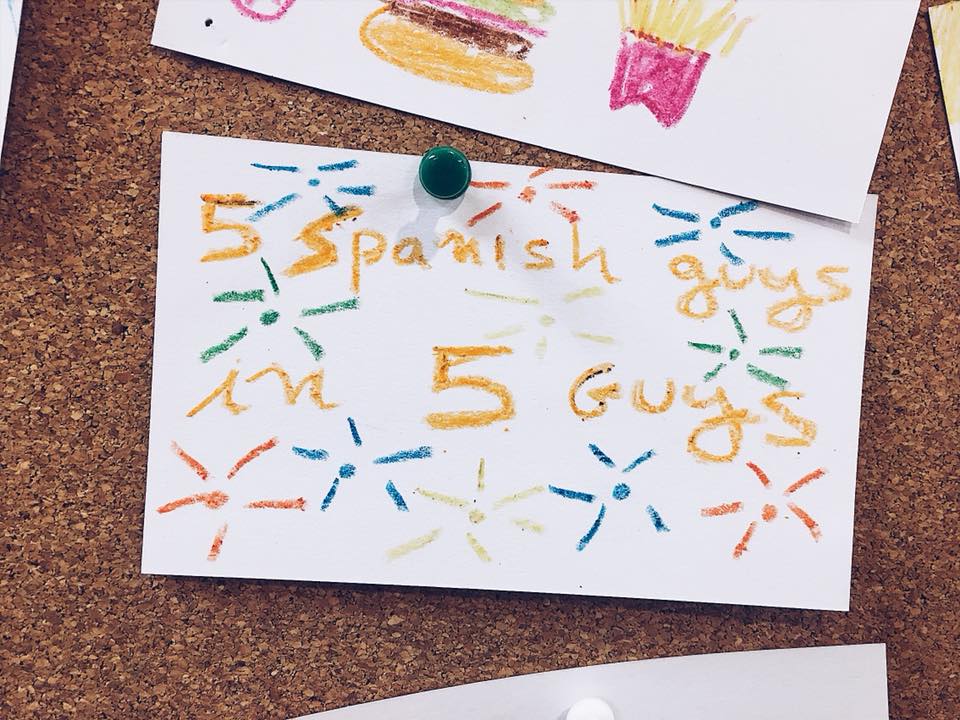 5 Spanish guys
in 5 Guys